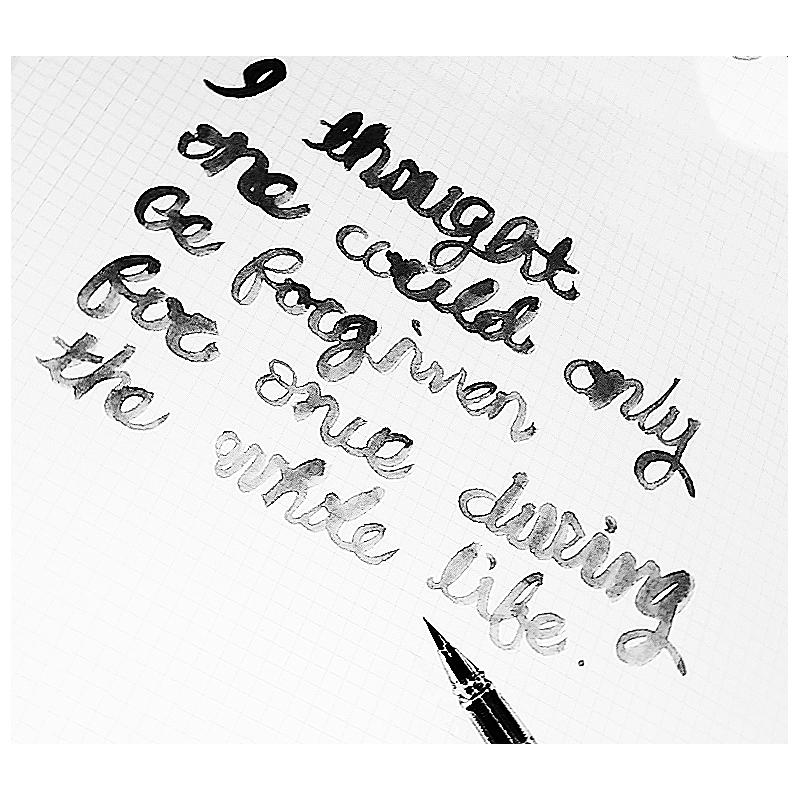 I thought
one could only
be forgiven
for once during
the whole life.